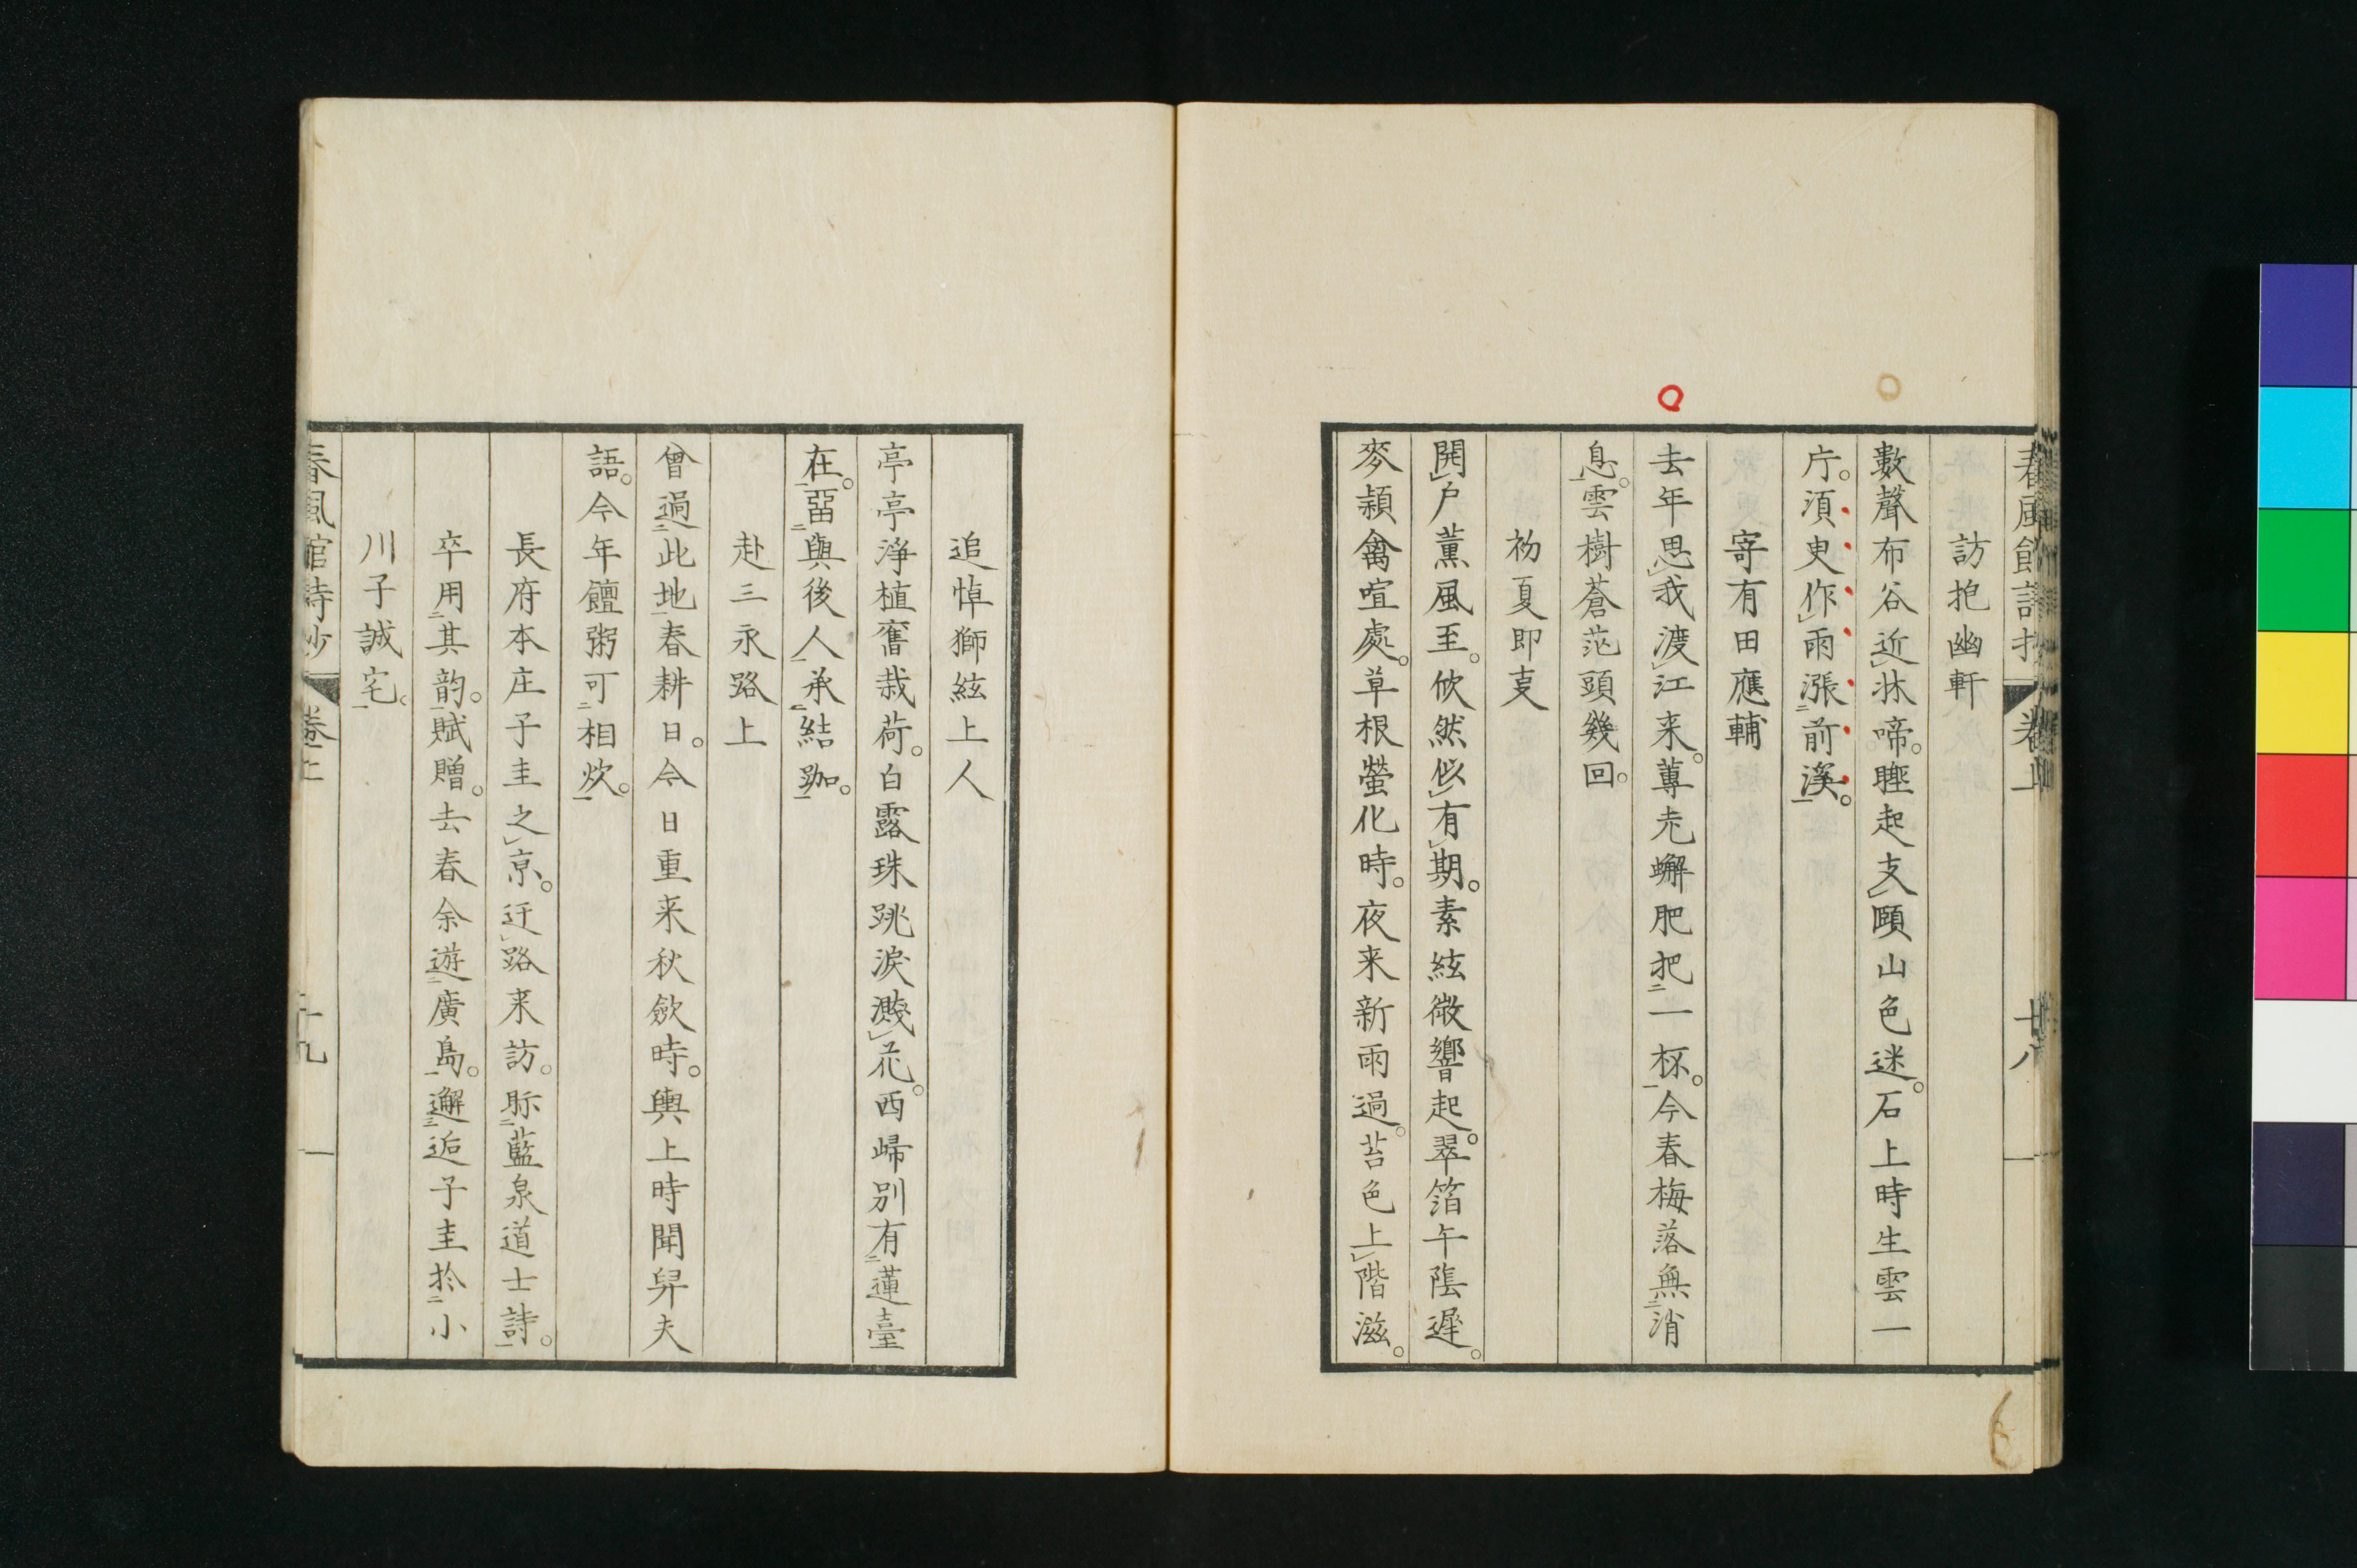 春風館詩抄 卷上 廿八
訪抱幽軒
數聲布谷近林啼。睡起支頤山色迷。石上時生雲一
片。須臾作雨漲前溪。
寄有田應輔
去年思我渡江来。蓴老蠏肥把一杯。今春梅落無消
息。雲樹蒼茫頭幾回。
初夏即事
開户薰風至。攸然似有期。素絃微響起。翠箔午陰遲。
麥穎禽喧處。草根螢化時。夜来新雨過。苔色上階滋。
追悼獅絃上人
亭亭淨植舊栽荷。白露珠跳淚濺花。西歸別有蓮臺
在。留與後人承結跏。
赴三永路上
曾過此地春耕日。今日重来秋斂時。輿上時聞舁夫
語。今年饘粥可相炊。
長府本庄子圭之京。迂路来訪。眎藍泉道士詩。
卒用其韵。賦贈。去春余遊廣島。邂逅子圭於小
川子誠宅。
春風館詩抄 卷上 十九